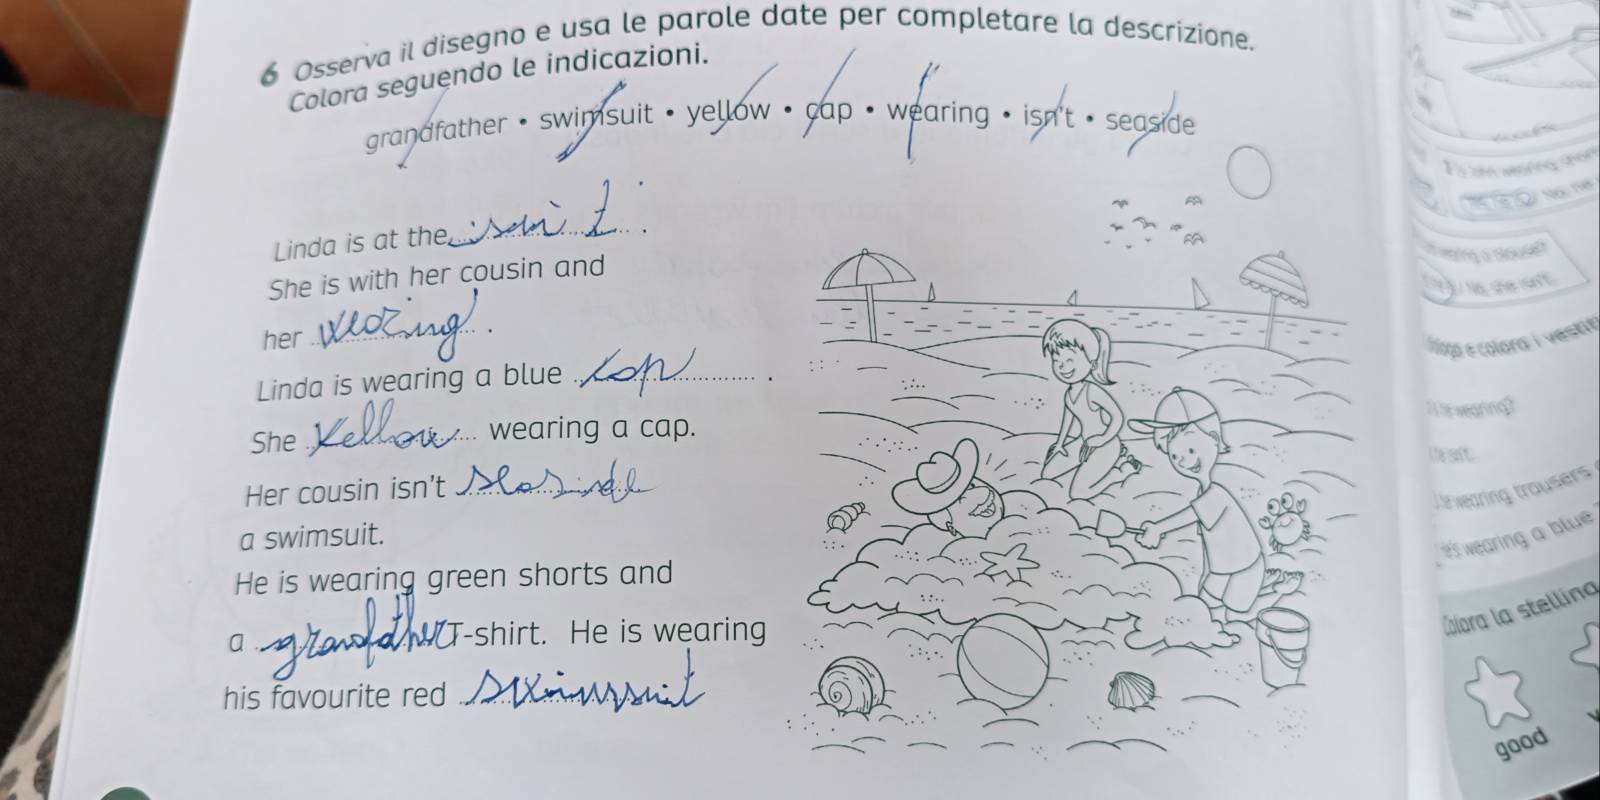 6 Osserva il disegno e usa le parole date per completare la descrizione.
Colora seguendo le indicazioni.
grandfather • swimsuit • yellow • cap • wearing • isn't • seaside
Linda is at the isn't.
She is with her cousin and
her wearing.
Linda is wearing a blue cap.
She Yellow wearing a cap.
Her cousin isn't seaside
a swimsuit.
He is wearing green shorts and
a grandfather T-shirt. He is wearing
his favourite red swimsuit
e colora i vestiti
wearing trousers
wearing a blue
Colora la stellina
good